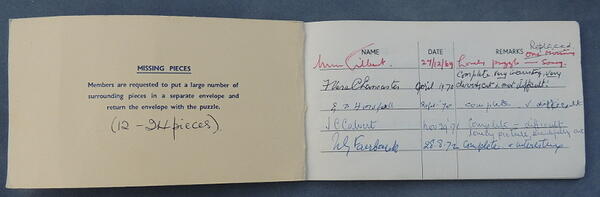 MISSING PIECES
Members are requested to put a large number of
surrounding pieces in a separate envelope and
return the envelope with the puzzle.
(12 – 24 pieces).
NAME DATE REMARKS Replaced
Gilbert 27/12/69 Lovely puzzle — one missing Sorry.
Complete very interesting, very
April 1970 difficult!
'70 complete & difficult
J C Calvert Nov 29 '71 Complete – difficult
lovely picture, beautifully cut
Fairbank 28.8.72 Complete & interesting